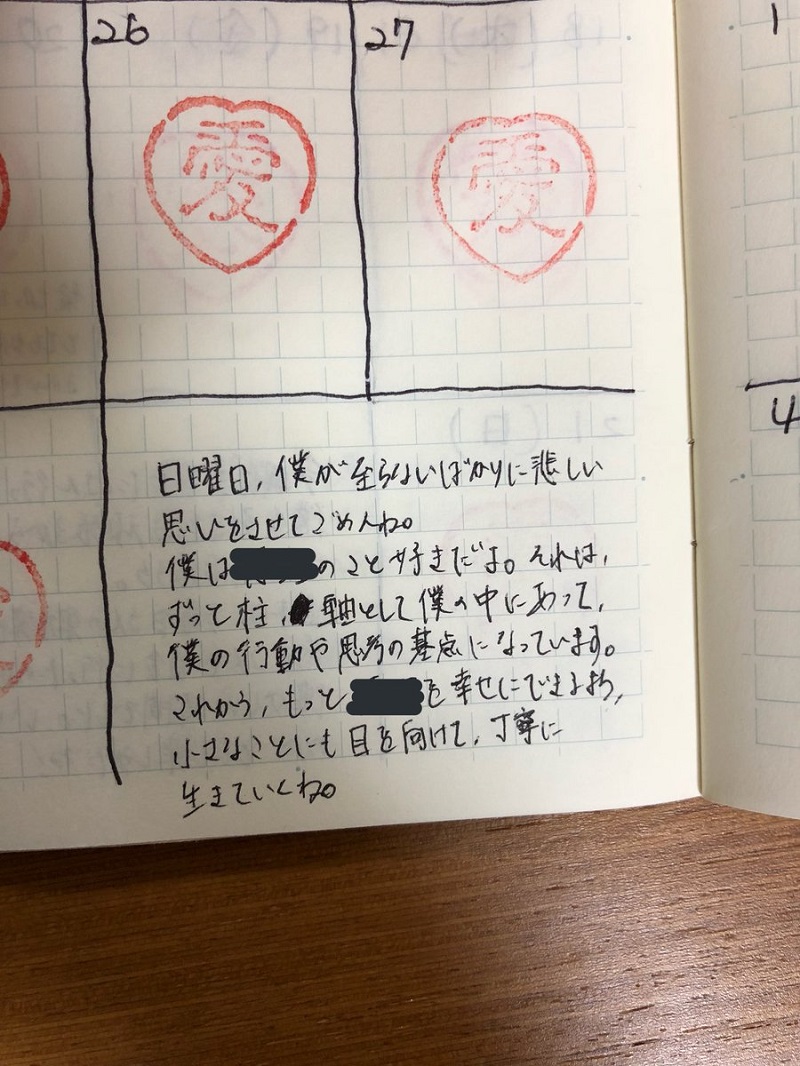 26
27
1
愛
愛
4
日曜日,僕が至らないばかりに悲しい
思いをさせてごめんね。
僕は
のこと好きだよ。それは,
ずっと柱,軸として僕の中にあって,
僕の行動や思考の基点になっています。
これから,もっと
を幸せにできるよう,
小さなことにも目を向けて,丁寧に
生きていくね。